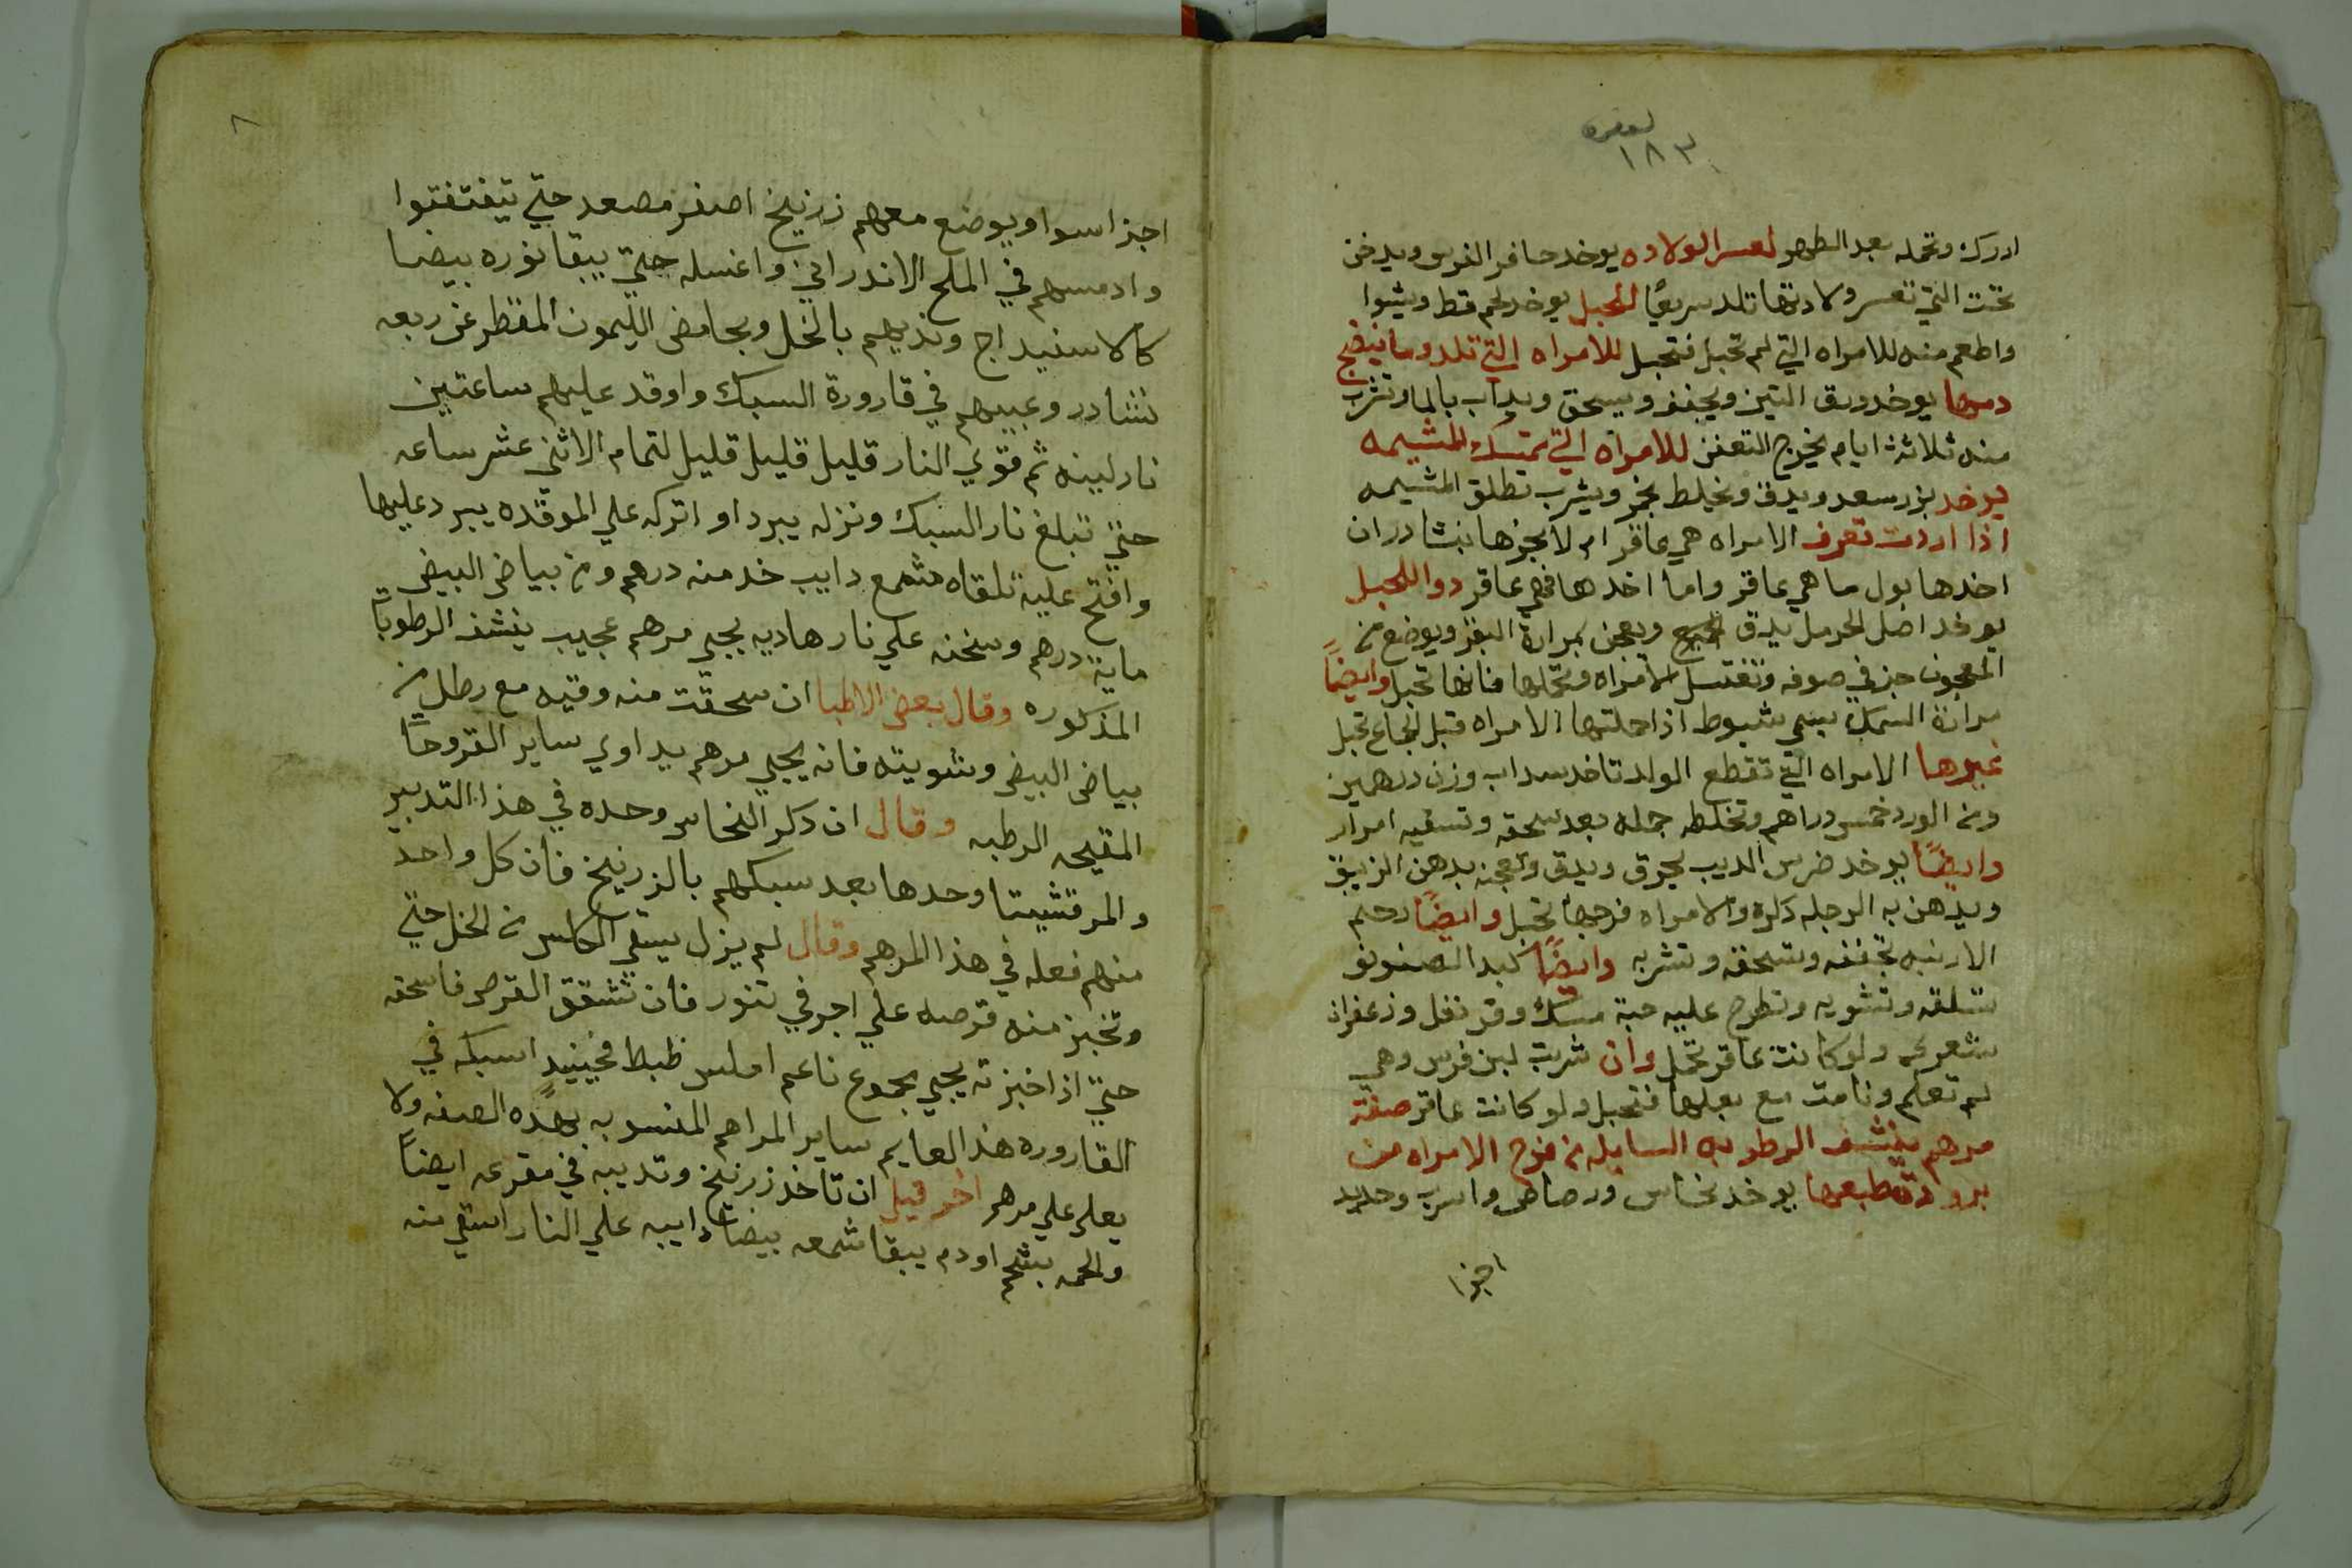 ١٨٣
ادركت وتحمله بعد الطهر لعسر الولاده يوخد حافر الفرس ويدخن
تحت التي تعسر ولادتها تلد سريعًا للحبل يوخد لحم قط ويشوا
واطعم منه للامراه التي لم تحبل فتحبل للامراه التي تلد وما نيضج
دمها يوخد ورق التين ويجفف ويسحق ويداب بالما وتشرب
منه ثلاثة ايام يخرج التعفن للامراه التي تمتسك المشيمه
يوخد بزر سعد ويدق ويخلط بخمر ويشرب تطلق المشيمه
اذا اردت تعرف الامراه هي عاقر ام لا بخرها بنشادر ان
اخدها بول ما هي عاقر واما اخدها فهي عاقر دوا للحبل
يوخد اصل الحرمل يدق ويعجن بمرارة البقر ويوضع من
المعجون جز في صوفه وتغتسل الامراه وتحملها فانها تحبل وايضًا
مرارة السمك يسمي شبوط اذا حملتها الامراه قبل الجماع تحبل
غيرها الامراه التي تقطع الولد تاخد سداب وزن درهمين
ومن الورد خمس دراهم وتخلطه جمله بعد سحقه وتسقيه امرار
وايضًا يوخد ضرس الديب يحرق ويدق وتعجنه بدهن الزيبق
ويدهن به الرجله دكره والامراه فرجها تحبل وايضًا رحم
الارنبه تجففه وتسحقه وتشربه وايضًا كبد
تسلقه وتشويه وتطرح عليه حبة مسك وقرنفل وزعفران
شعر ولو كانت عاقر تحمل وان شربت لبن فرس وهي
لم تعلم ونامت مع بعلها فتحبل ولو كانت عاقر صفة
مرهم ينشف الرطوبه السايله من فرج الامراه من
برودة طبعها يوخد نحاس ورصاص واسرب وحديد
اجزا
٨
اجزا سوا ويوضع معهم زرنيخ اصفر مصعد حتي يتفتفتوا
وادمسهم في الملح الاندراني واغسله حتي يبقا نوره بيضا
كالاسفيداج ونديهم بالخل وبحامض الليمون المقطر عن ربعه
نشادر وعبيهم في قارورة السبك واوقد عليهم ساعتين
نار لينه ثم قوي النار قليل قليل قليل لتمام الاثني عشر ساعه
حتي تبلغ نار السبك ونزله يبرد او اتركه علي الموقده يبرد عليها
وافتح عليه تلقاه مشمع دايب خد منه درهم ومن بياض البيض
ماية درهم وسخنه علي نار هاديه يجي مرهم عجيب ينشف الرطوبا
المذكوره وقال بعض الاطبا ان سحقت منه وقيه مع رطل من
بياض البيض وشويته فانه يجي مرهم يداوي ساير القروحا
المقيحه الرطبه وقال ان دكر النحاس وحده في هذا التدبير
والمرقشيتا وحدها بعد سبكهم بالزرنيخ فان كل واحد
منهم فعله في هذا المرهم وقال لم يزل يسقي الكاس من الخل حتي
وتخبز منه قرصه علي اجر في تنور فان تشقق القرص فاسحقه
حتي اذا خبزته يجي مجموع ناعم املس ظبط فحينيد اسبكه في
القاروره هذا العايم ساير المراهم المنسوبه بهذه الصفه ولا
يعلي علي مرهم اخر قيل ان تاخد زرنيخ وتديبه في مقرعه ايضًا
والحمه بشحم اودم يبقا شمعه بيضا دايبه علي النار اسقي منه